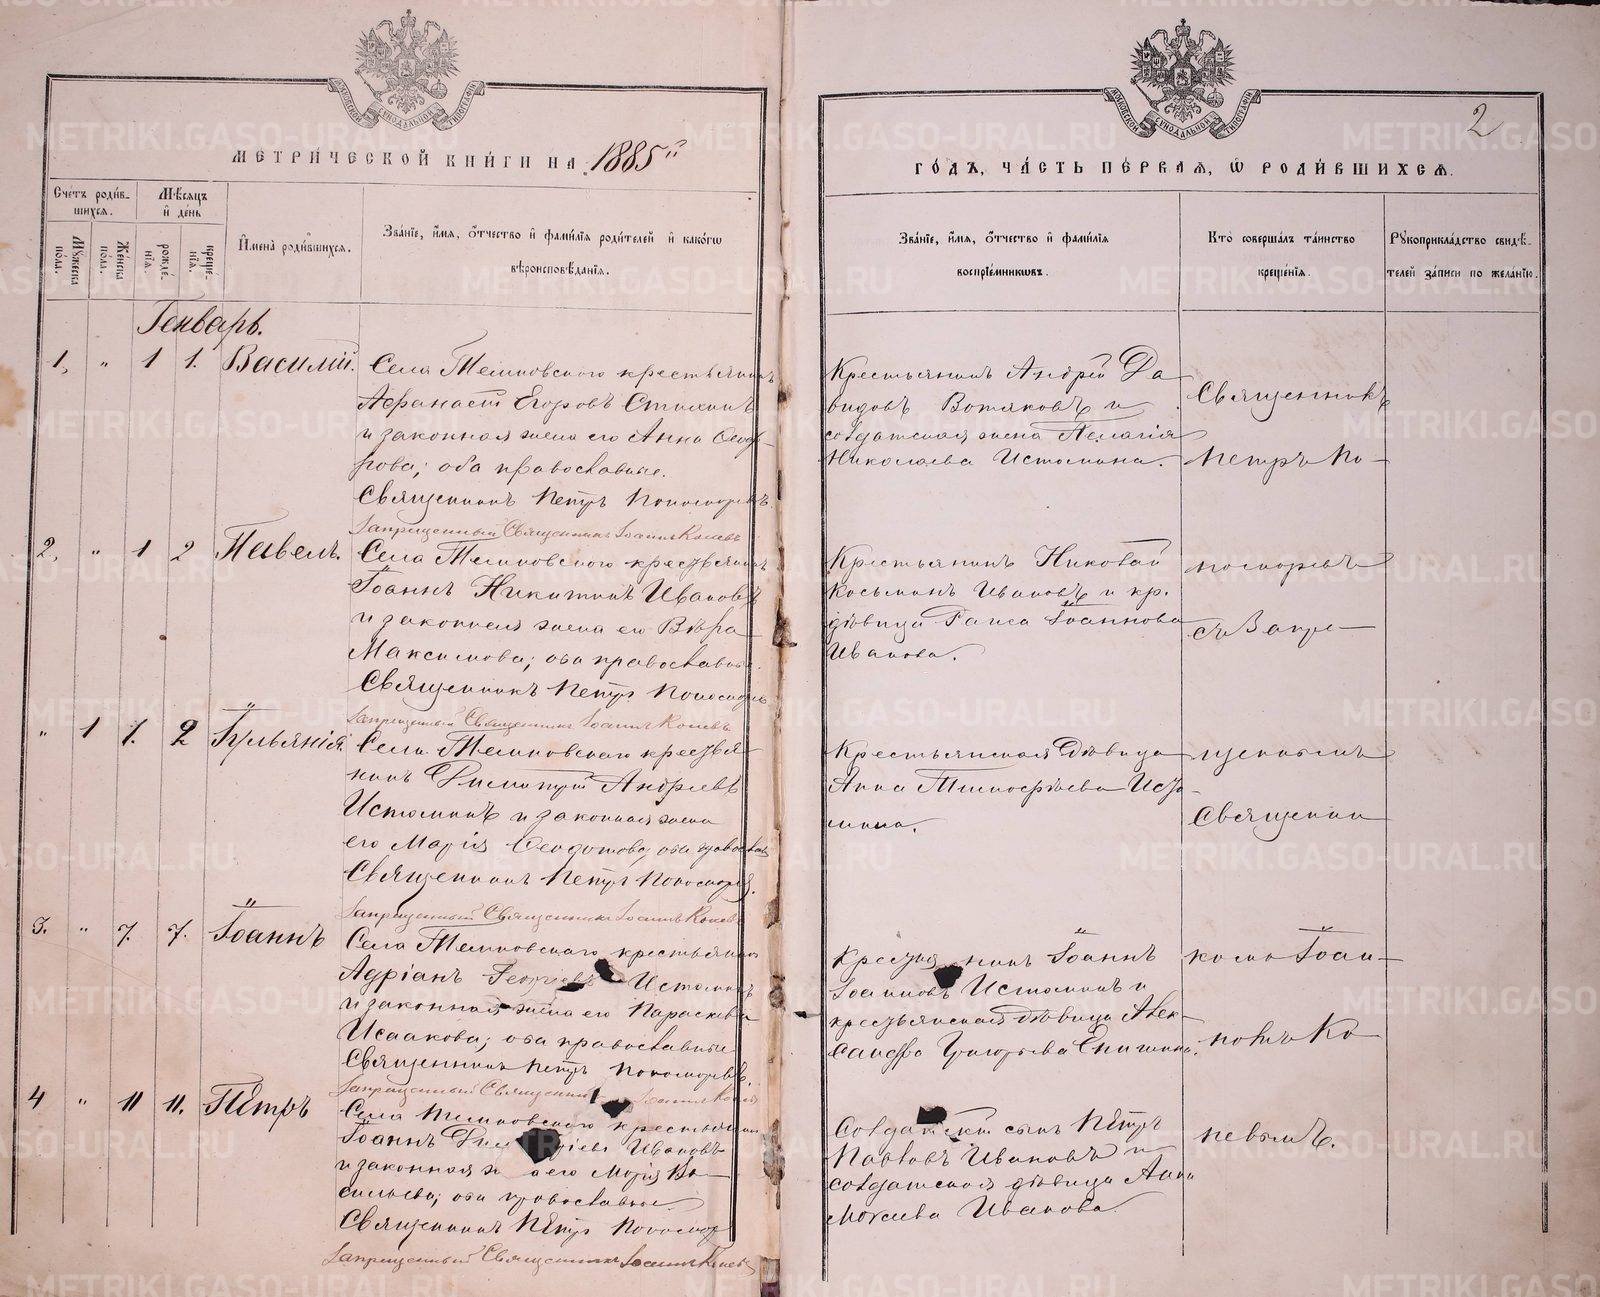 МЕТРИЧЕСКОЙ КНИГИ НА 1885й
Счетъ родив-
шихся.
Мѣсяцъ
и день
Мужеска
пола.
Женска
пола.
рожде-
нія.
креще-
нія.
Имена родившихся.
Званіе, имя, отчество и фамилія родителей и какогѡ
вѣроисповѣданія.
Генварь.
1, " 1 1. Василій.
Села Темновского крестьянинъ
Афанасій Егоровъ Стихинъ
и законная жена его Анна Ѳеодо-
рова; оба православные.
Священникъ Петръ Пономаревъ
Запрещенный Священникъ Іоаннъ Коневъ
2, " 1 2 Павелъ.
Села Темновского крестьянинъ
Іоаннъ Никитинъ Ивановъ
и законная жена его Вѣра
Максимова; оба православные.
Священникъ Петръ Пономаревъ
Запрещенный Священникъ Іоаннъ Коневъ
" 1 1. 2 Іульянія.
Села Темновского крестья-
нинъ Димитрій Андреевъ
Истоминъ и законная жена
его Марія Ѳеодотова; оба православные
Священникъ Петръ Пономаревъ.
Запрещенный Священникъ Іоаннъ Коневъ
3. " 7. 7. Іоаннъ
Села Темновского крестьянинъ
Адріанъ Георгіевъ Истоминъ
и законная жена его Параскева
Исаакова; оба православные
Священникъ Петръ Пономаревъ.
Запрещенный Священникъ Іоаннъ Коневъ
4 " 11 11. Петръ
Села Темновского крестьянинъ
Іоаннъ Ивановъ
и законная его Марія Ва-
сильева; оба православные.
Священникъ Петръ Пономар
Запрещенный Священникъ Іоаннъ Коневъ
2
ГОДЪ, ЧАСТЬ ПЕРВАЯ, Ѡ РОДИВШИХСЯ.
Званіе, имя, отчество и фамилія
воспріемниковъ.
Кто совершалъ таинство
крещенія.
Рукоприкладство свидѣ-
телей записи по желанію.
Крестьянинъ Андрей Да-
видовъ Вотяковъ и
солдатская жена Пелагія
Николаева Истомина.
Крестьянинъ Николай
Косьминъ Ивановъ и кр.
дѣвица Раиса Іоаннова
Иванова.
Крестьянская дѣвица
Анна Тимофеева Исто-
мина.
Крестьянинъ Іоаннъ
Іоанновъ Истоминъ и
крестьянская дѣвица Алек-
сандра Григорьева
Солдатскій сынъ Петръ
Павловъ Ивановъ и
солдатская дѣвица Анна
Мокеева Иванова
Священникъ
Петръ По-
номаревъ
съ Запре-
щеннымъ
Священни
комъ Іоан-
номъ Ко
невымъ.
METRIKI.GASO-URAL.RU